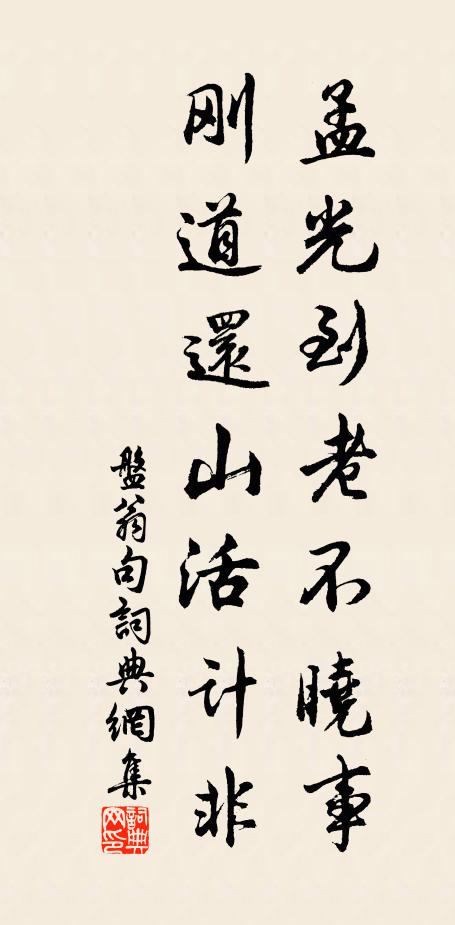 孟光到老不曉事
刚道還山活计非
盤翁句詞典網集
詞典
网印